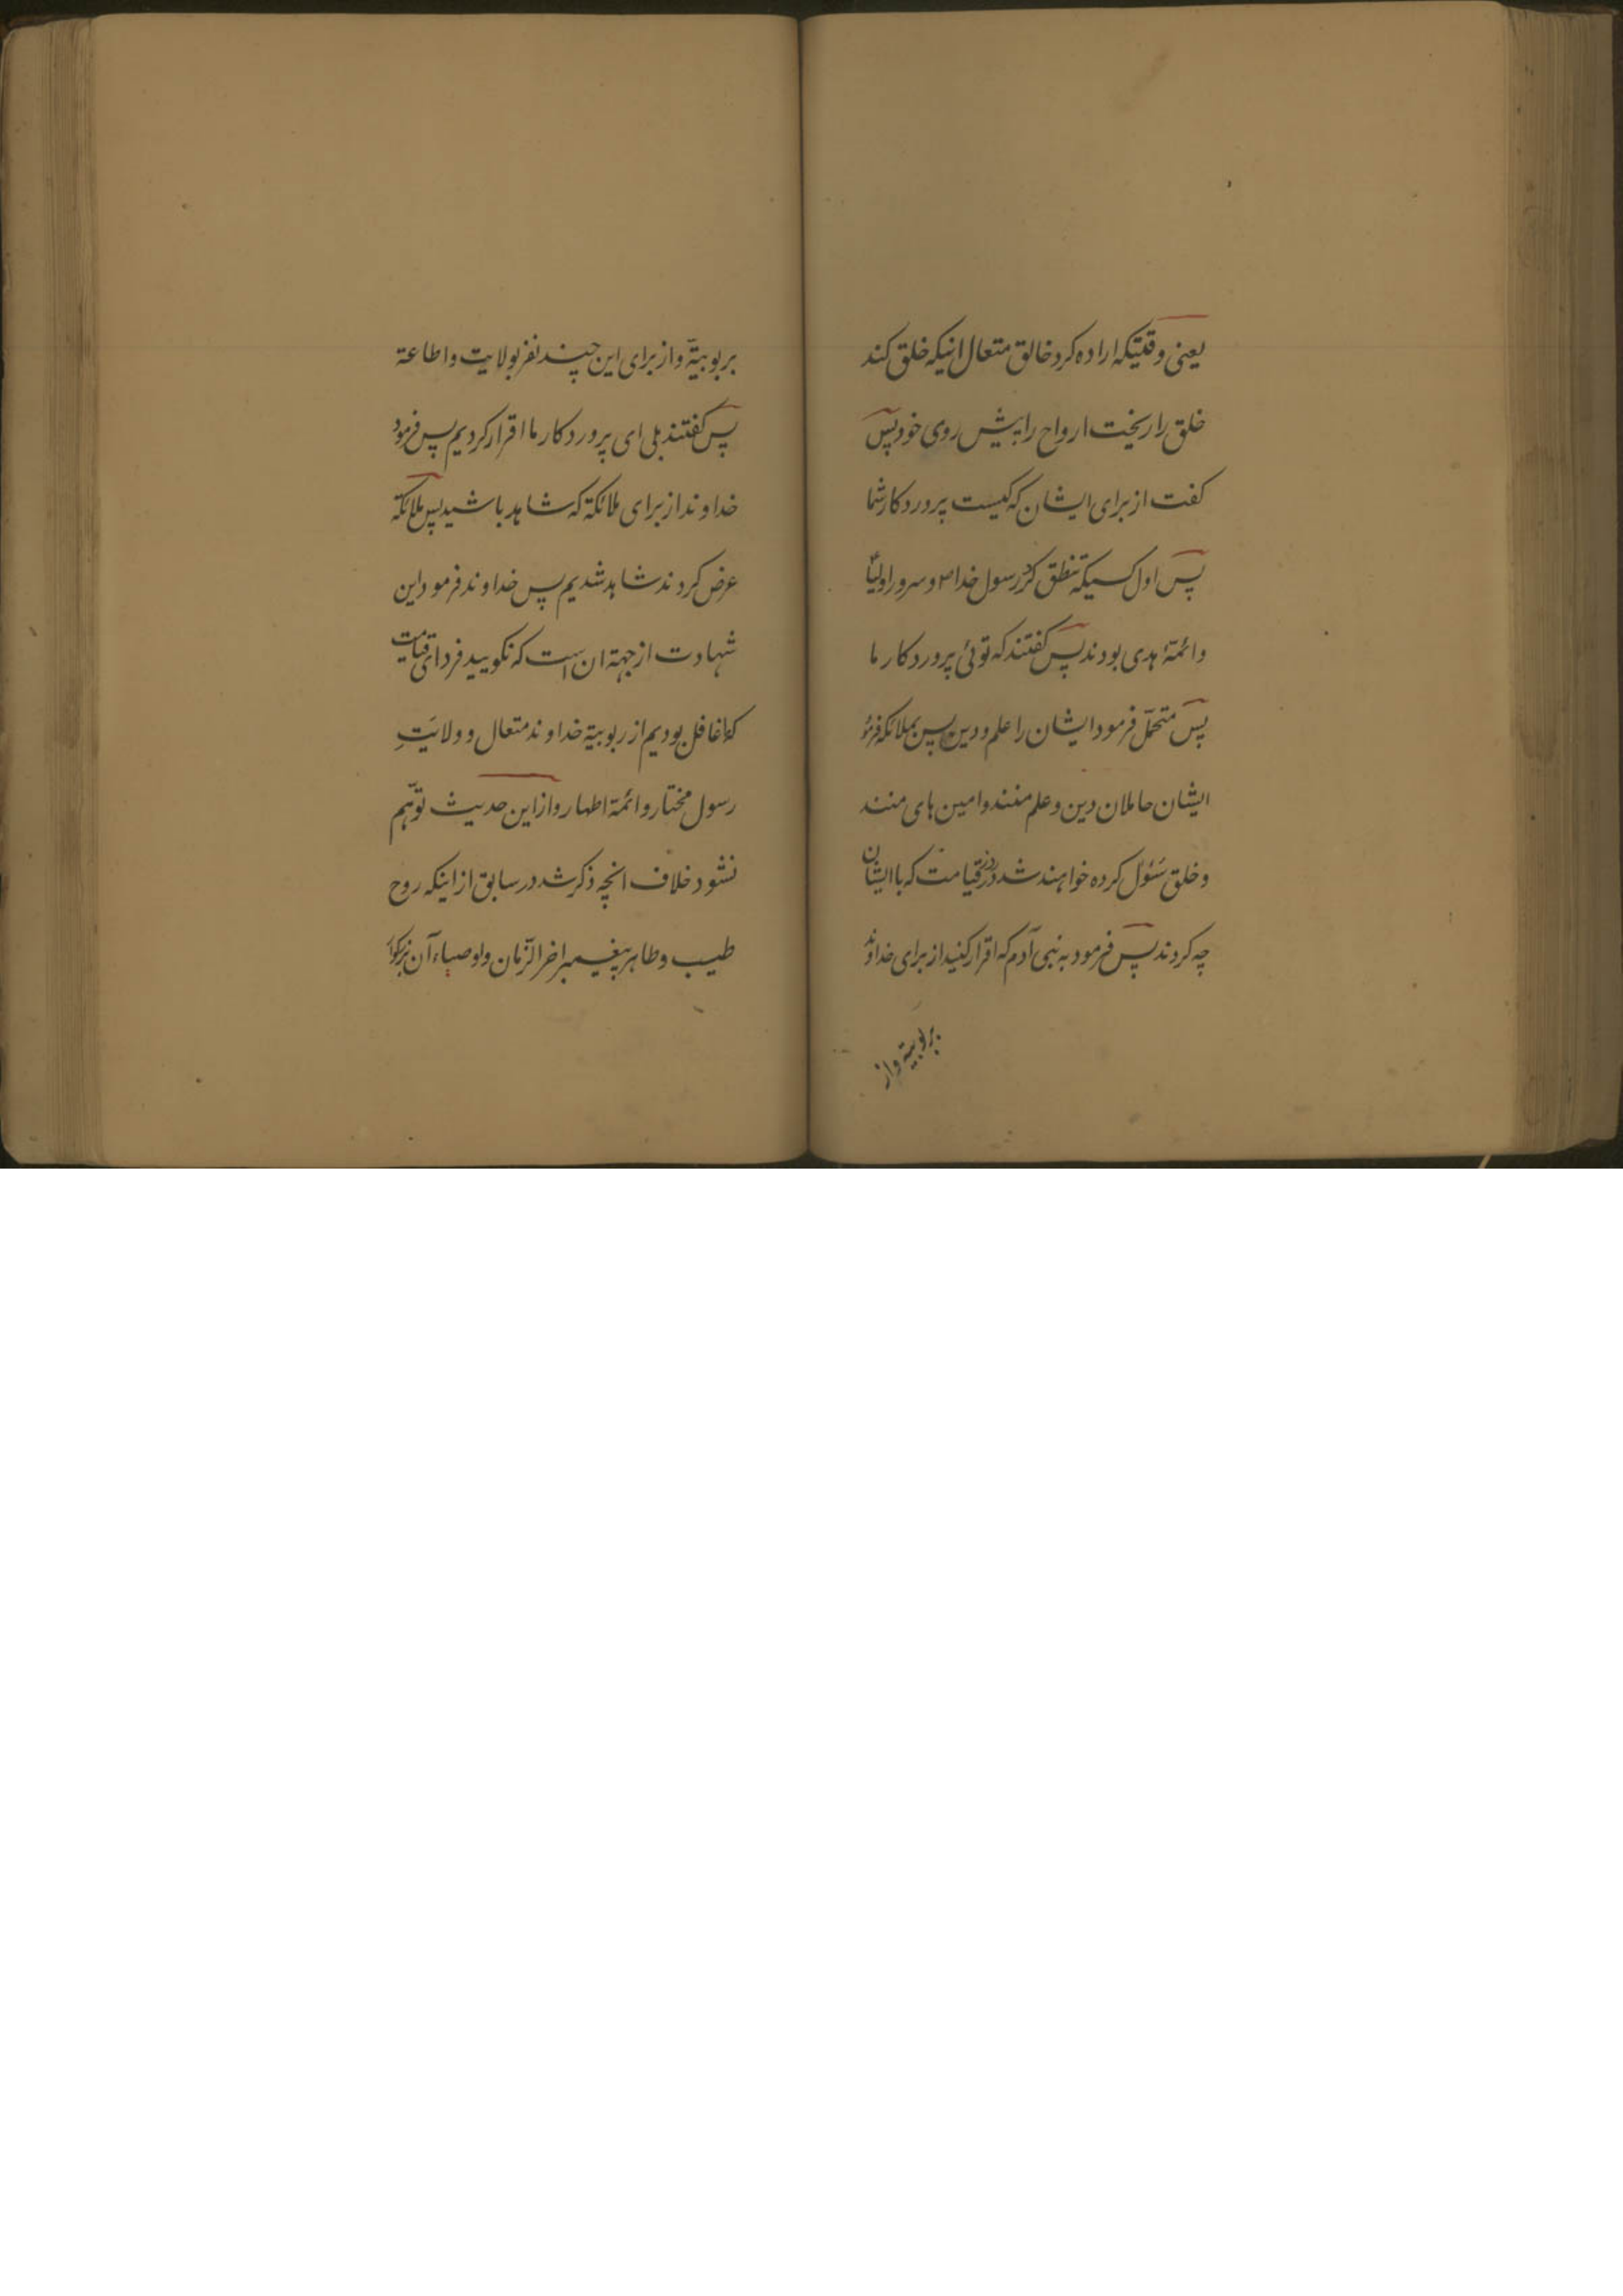 یعنی وقتیکه اراده کرد خالق متعال انیکه خلق کند
خلق را ریخت ارواح را پیش روی خود پس
کفت از برای ایشان که کیست پروردکار شما
پس اول کسیکه تنطق کرد رسول خدا ص و سرور اولیا
و ائمّهٔ هدی بودند پس کفتند که توئی پروردکار ما
پس متحمّل فرمود ایشان را علم و دین پس بملائکه فرمود
ایشان حاملان دین و علم منند و امین های منند
و خلق سَئول کرده خواهند شد در روز قیامت که با ایشان
چه کردند پس فرمود به نبی آدم که اقرار کنید از برای خداوند
بربوبیة و از
بربوبیّة و از برای این چند نفر بولایت و اطاعة
پس کفتند بلی ای پروردکار ما اقرار کردیم پس فرمود
خداوند از برای ملائکة که شاهد باشید پس ملائکة
عرض کردند شاهد شدیم پس خداوند فرمود این
شهادت از جهة ان است که نکویید فردای قیامت
که ما غافل بودیم از ربوبیة خداوند متعال و ولایَتِ
رسول مختار و ائمّة اطهار و از این حدیث توّهم
نشود خلاف انچه ذکر شد در سابق از اینکه روح
طیب و طاهر پیغیمبر اخر الزّمان و اوصیاء آن بزرکوار